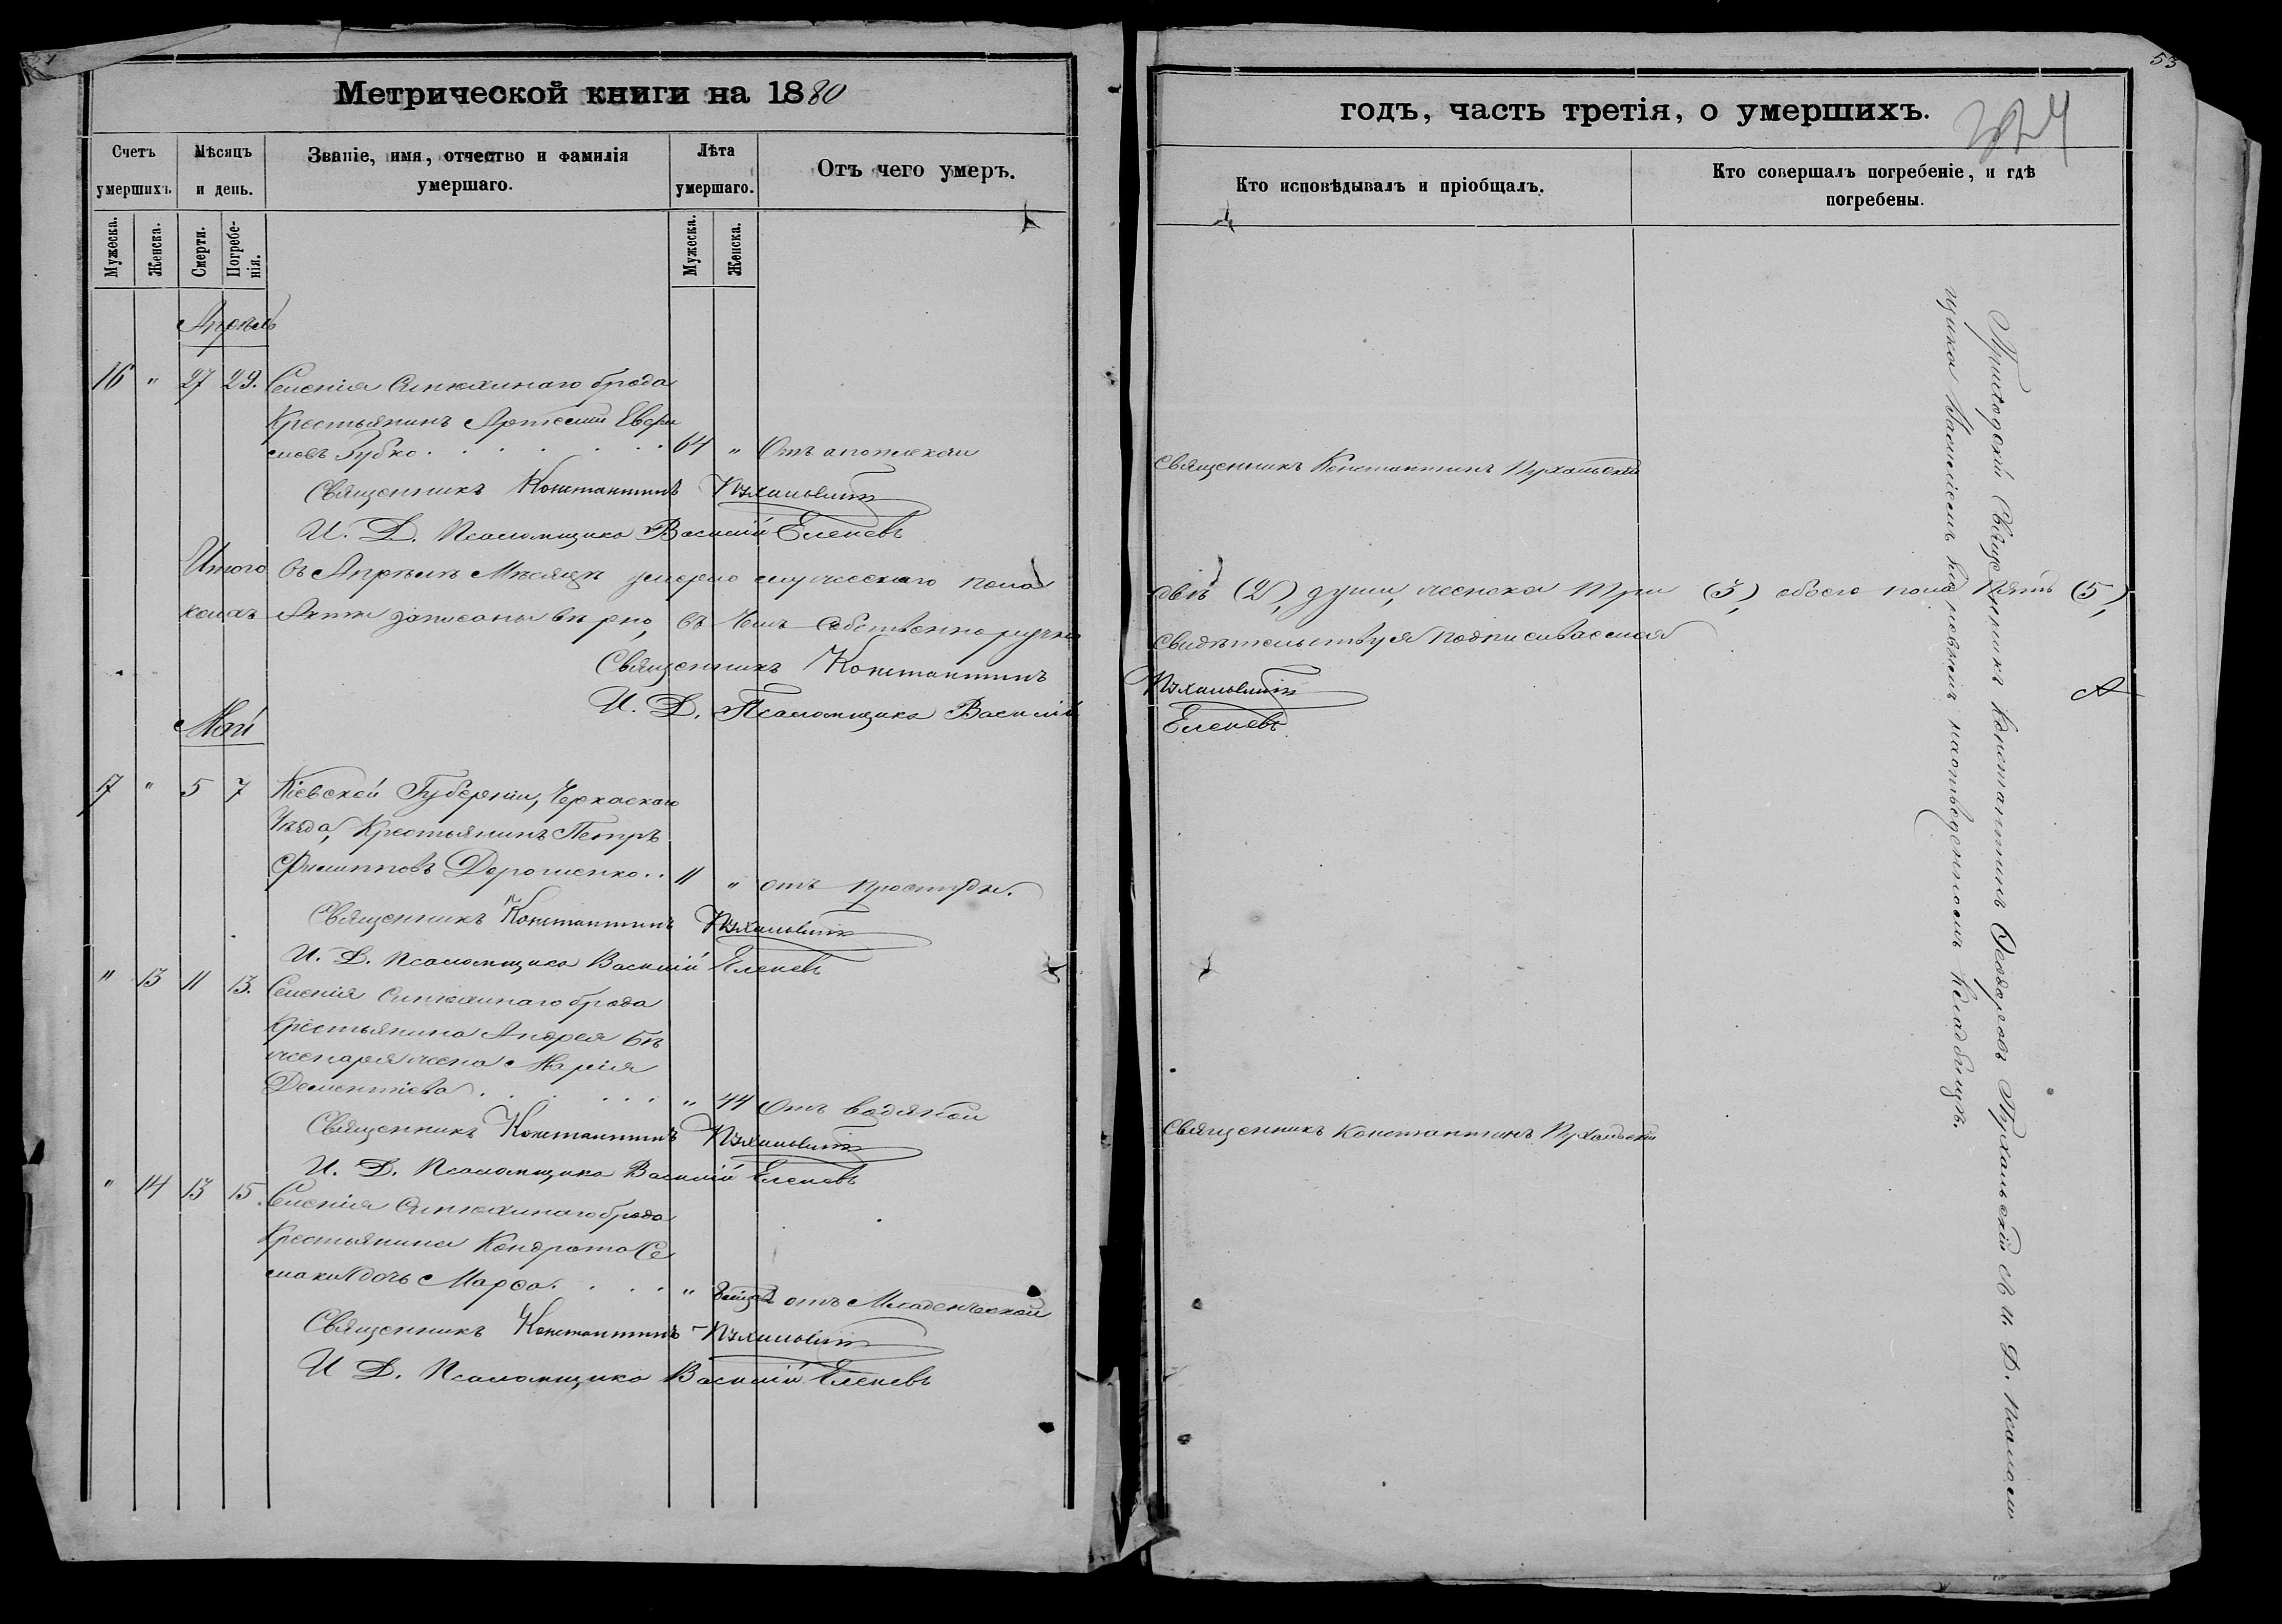 Метрической книги на 1880
Счетъ умершихъ.
Мѣсяцъ и день.
Званіе, имя, отчество и фамилія умершаго.
Лѣта умершаго.
Отъ чего умеръ.
Мужеска. Женска. Смерти. Погребе-нія. Мужеска. Женска.
Апрѣль
16 " 27 29. Селенія Синюхинаго брода
Крестьянинъ Артемій
Губко . . . . . . . 64 " Отъ апоплексіи
Священникъ Константинъ Пухальскій
И. Д. Псаломщика Василій Еленевъ
Итого въ Апрѣлѣ Мѣсяцѣ умерло мужескаго пола
Акты записаны вѣрно, въ чемъ собственноручно
Священникъ Константинъ
И. Д. Псаломщика Василій
Май
17 " 5 7 Кіевской Губерніи, Черкаскаго
Уѣзда, Крестьянинъ Петръ
Филипповъ Дорошенко . . 11 " отъ простуды.
Священникъ Константинъ Пухальскій
И. Д. Псаломщика Василій Еленевъ
" 13 11 13. Селенія Синюхинаго брода
Крестьянина Андрея Бѣ
женаря жена Марія
Дементіева . . . . . . " 44 Отъ водяной
Священникъ Константинъ Пухальскій
И. Д. Псаломщика Василій Еленевъ
" 14 13 15. Селенія Синюхинаго брода
Крестьянина Кондрата Се
маки дочь Марѳа . . . . " отъ Младенческой
Священникъ Константинъ Пухальскій
И Д. Псаломщика Василій Еленевъ
53
годъ, часть третія, о умершихъ.
Кто исповѣдывалъ и пріобщалъ.
Кто совершалъ погребеніе, и гдѣ погребены.
Священникъ Константинъ Пухальскій
двѣ (2), души, женска три (3), обоего пола пять (5),
свидѣтельствуя подписываемся
Пухальскій
Еленевъ
Священникъ Константинъ Пухальскій
Приходскій Священникъ Константинъ Ѳеодоровъ Пухальскій И. Д. Псалом
щика Василіемъ на приходскомъ Кладбищѣ.